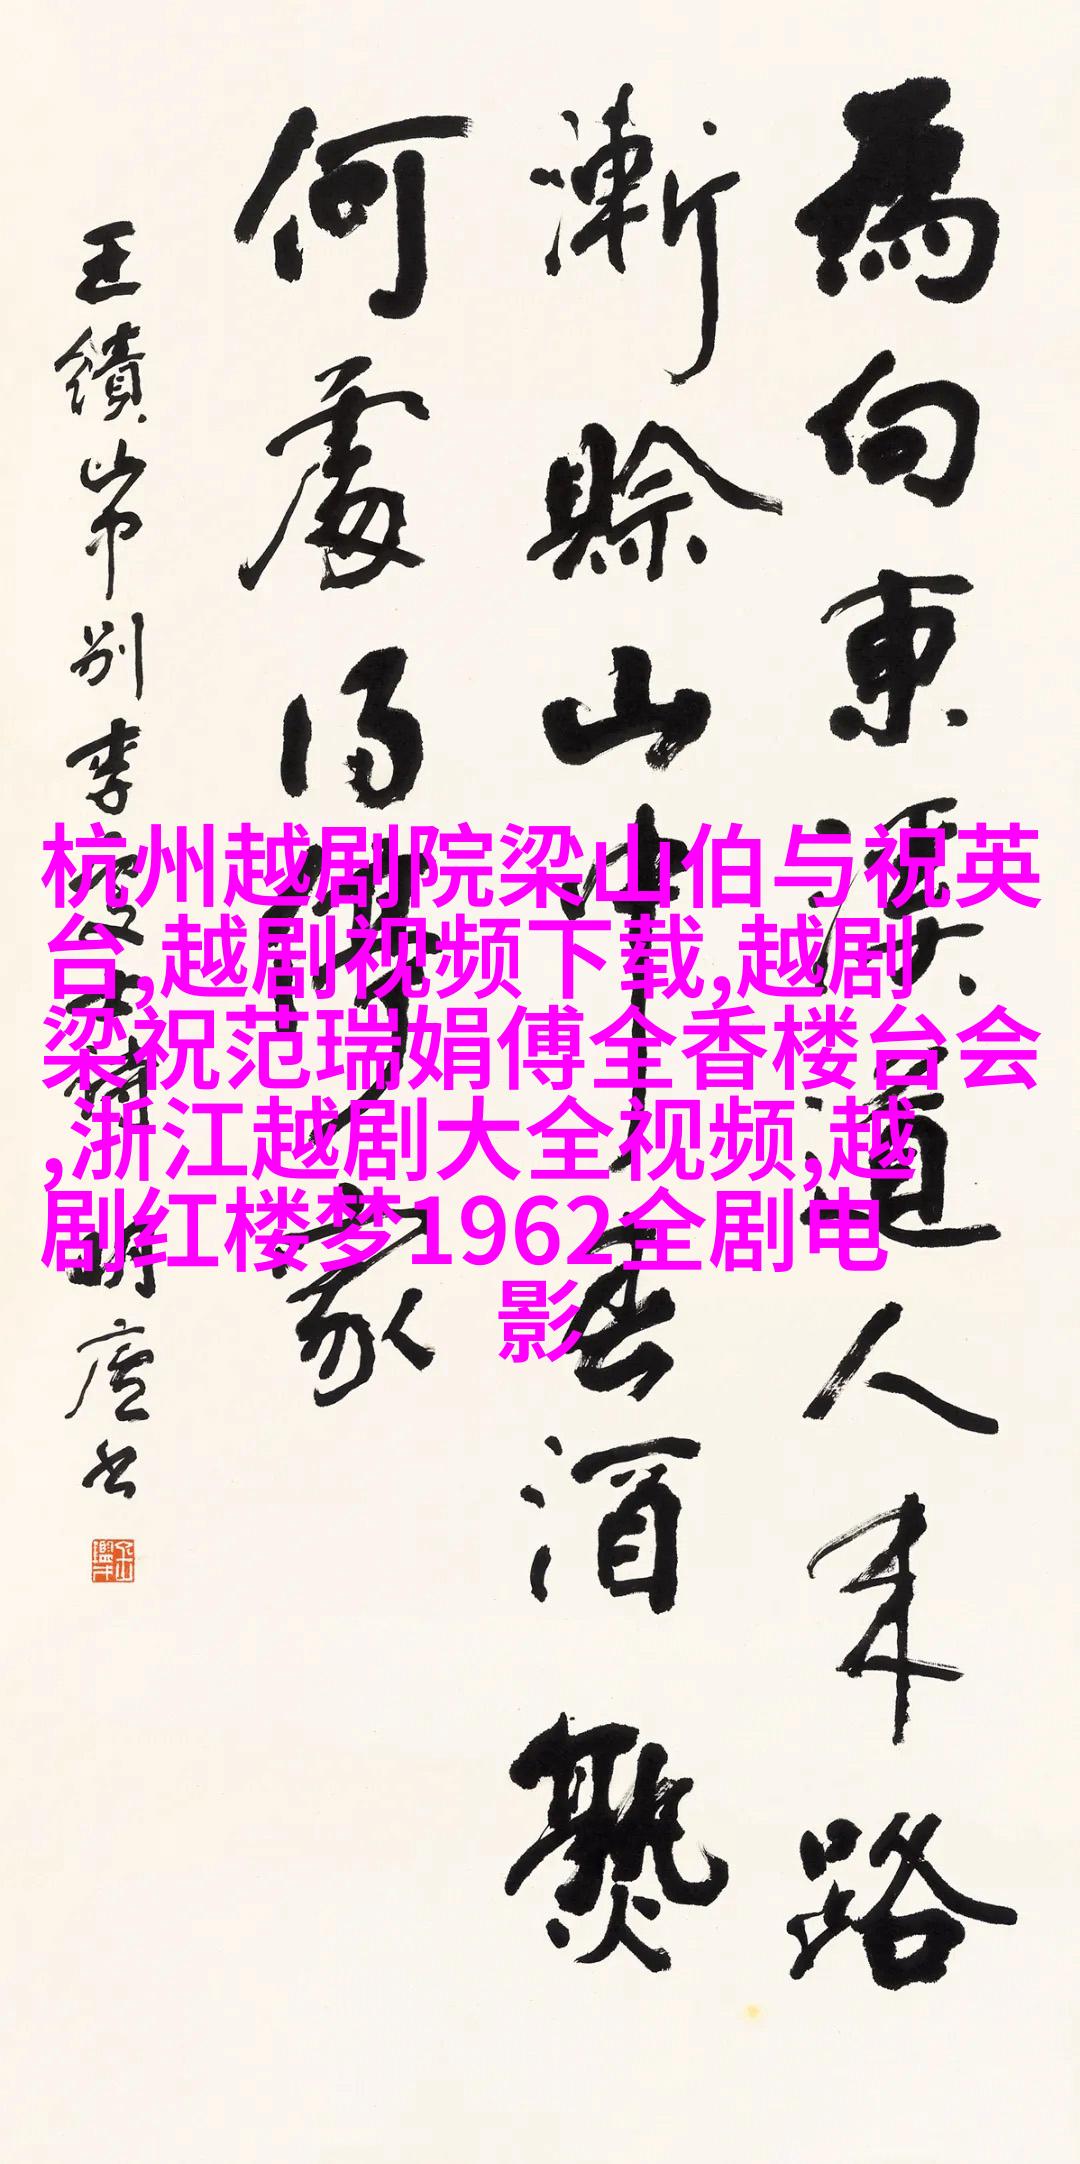 為向東溪道人來路
漸賒山中春酒熟
何處得停家
王績山中別李處士詩 明廬書
杭州越剧院梁山伯与祝英
台,越剧视频下载,越剧
梁祝范瑞娟傅全香楼台会
,浙江越剧大全视频,越
剧红楼梦1962全剧电
影